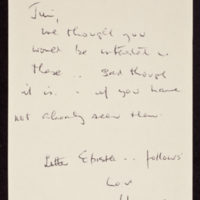 Jim,
we thought you
would be interested in
these .. sad though
it is .. if you have
not already seen them.
Letter .. follows
Love